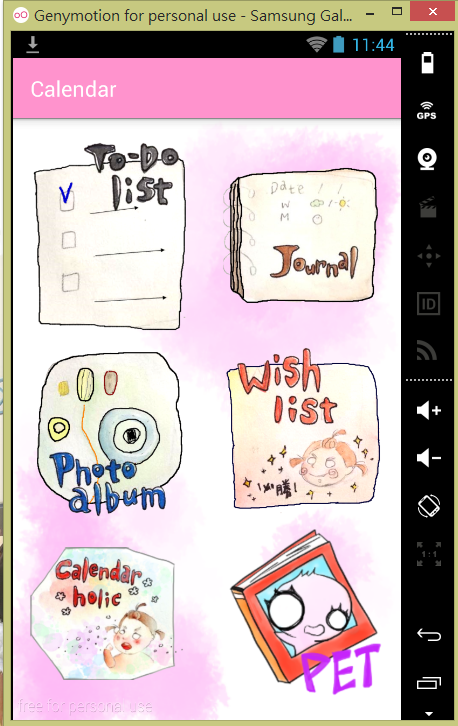 Genymotion for personal use - Samsung Gal...
11:44
Calendar
GPS
To-Do
list
Date / /
W
M
Journal
ID
Photo
album
Wish
list
必勝!
1:1
Calendar
holic
PET
free for personal use